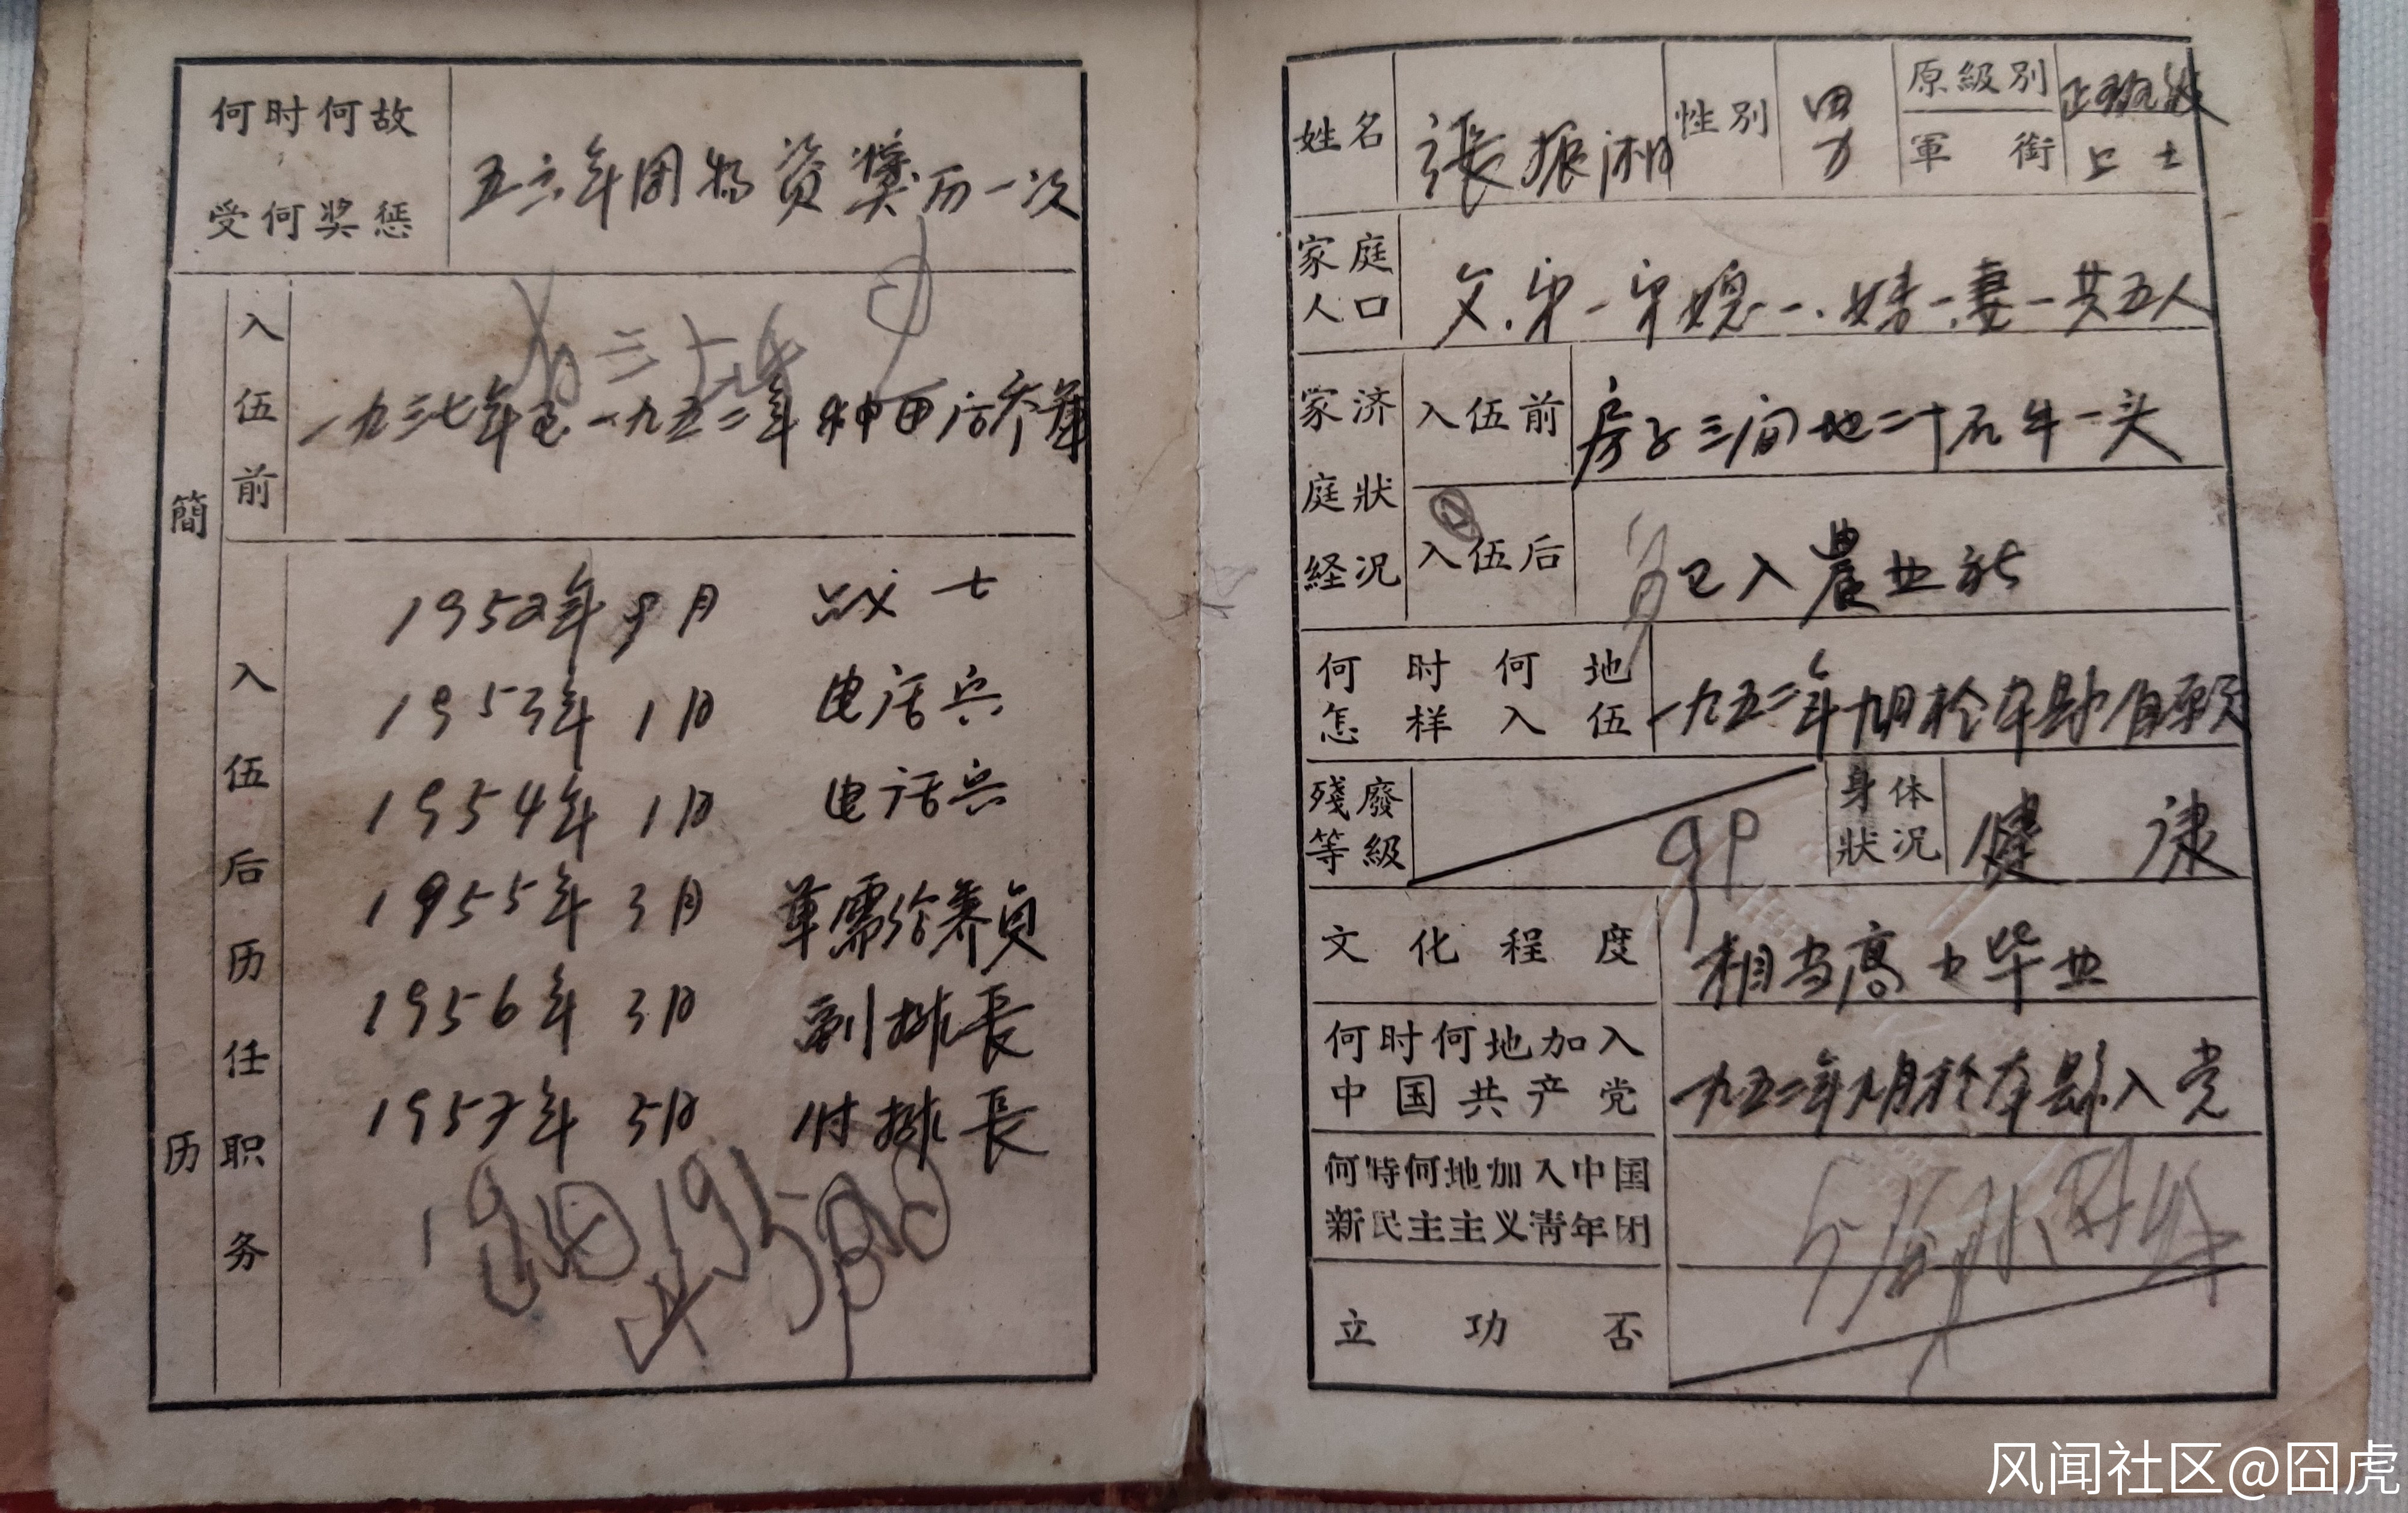 何时何故
受何奖惩
五六年团物资奖历一次
簡历
入伍前
一九三七年至一九五二年种田后参軍
入伍后历任职务
1952年9月 战士
1953年1月 电话兵
1954年1月 电话兵
1955年3月 軍需给养员
1956年3月 副排長
1957年3月 付排長
姓名
張振湘
性別
男
原級別
軍銜
上士
家庭
人口
父.弟一弟媳一.妹一.妻一共五人
家济
庭狀
経况
入伍前
房子三间地二十石牛一头
入伍后
已入農业社
何时何地
怎样入伍
一九五二年九月於本县自愿
殘廢
等級
身体
狀况
健康
文化程度
相当高小毕业
何时何地加入
中国共产党
一九五二年九月於本縣入党
何時何地加入中国
新民主主义青年团
立功否
风闻社区@囧虎